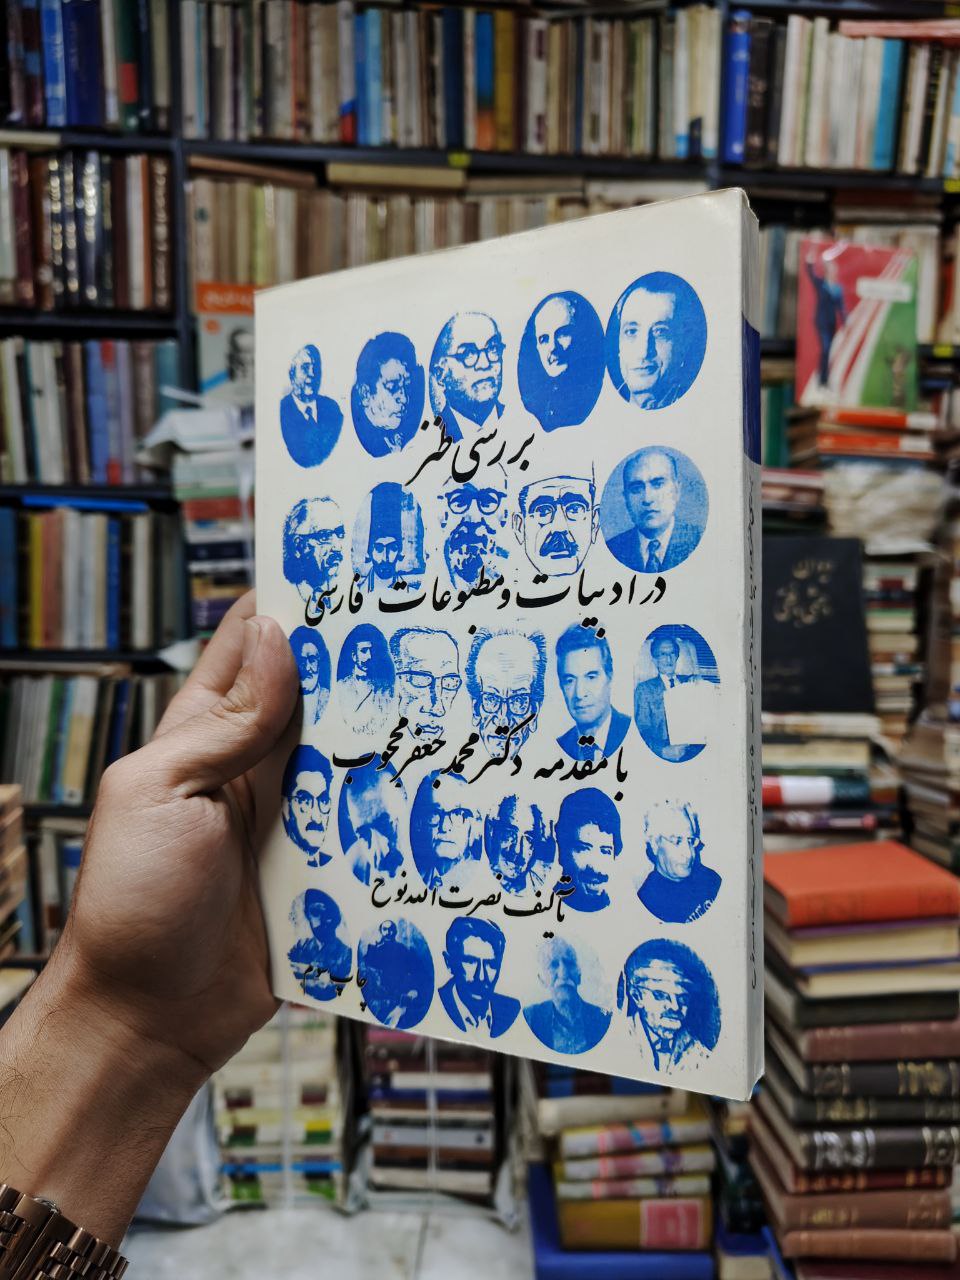 بررسی طنز
در ادبیات و مطبوعات فارسی
با مقدمه دکتر محمد جعفر محجوب
تألیف نصرت الله نوح
چاپ سوم
دیوان